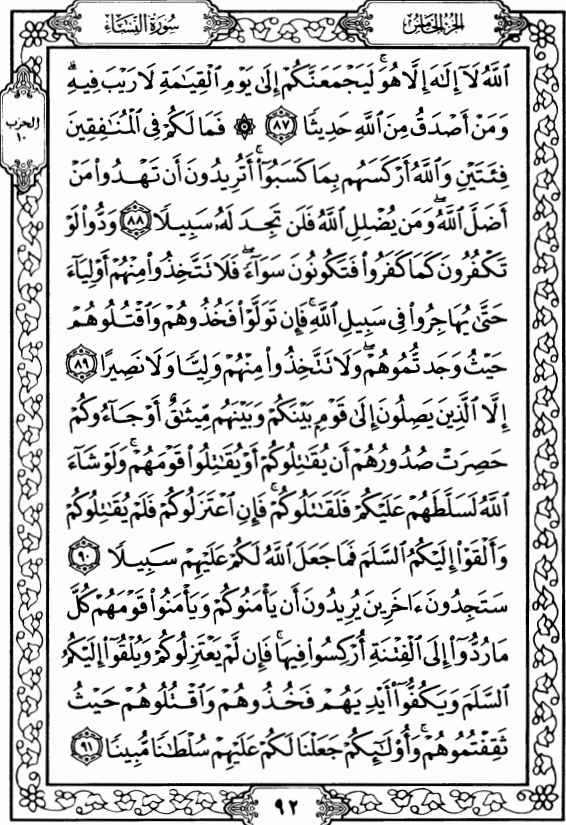 سُورَةُ النِّسَاءِ
الجُزْءُ الخَامِسُ
الحزب
١٠
ٱللَّهُ لَآ إِلَٰهَ إِلَّا هُوَۚ لَيَجْمَعَنَّكُمْ إِلَىٰ يَوْمِ ٱلْقِيَٰمَةِ لَا رَيْبَ فِيهِۗ
وَمَنْ أَصْدَقُ مِنَ ٱللَّهِ حَدِيثًا ٨٧ ۞ فَمَا لَكُمْ فِى ٱلْمُنَٰفِقِينَ
فِئَتَيْنِ وَٱللَّهُ أَرْكَسَهُم بِمَا كَسَبُوٓا۟ۚ أَتُرِيدُونَ أَن تَهْدُوا۟ مَنْ
أَضَلَّ ٱللَّهُۖ وَمَن يُضْلِلِ ٱللَّهُ فَلَن تَجِدَ لَهُۥ سَبِيلًا ٨٨ وَدُّوا۟ لَوْ
تَكْفُرُونَ كَمَا كَفَرُوا۟ فَتَكُونُونَ سَوَآءًۖ فَلَا تَتَّخِذُوا۟ مِنْهُمْ أَوْلِيَآءَ
حَتَّىٰ يُهَاجِرُوا۟ فِى سَبِيلِ ٱللَّهِۚ فَإِن تَوَلَّوْا۟ فَخُذُوهُمْ وَٱقْتُلُوهُمْ
حَيْثُ وَجَدتُّمُوهُمْۖ وَلَا تَتَّخِذُوا۟ مِنْهُمْ وَلِيًّا وَلَا نَصِيرًا ٨٩
إِلَّا ٱلَّذِينَ يَصِلُونَ إِلَىٰ قَوْمٍۭ بَيْنَكُمْ وَبَيْنَهُم مِّيثَٰقٌ أَوْ جَآءُوكُمْ
حَصِرَتْ صُدُورُهُمْ أَن يُقَٰتِلُوكُمْ أَوْ يُقَٰتِلُوا۟ قَوْمَهُمْۚ وَلَوْ شَآءَ
ٱللَّهُ لَسَلَّطَهُمْ عَلَيْكُمْ فَلَقَٰتَلُوكُمْۚ فَإِنِ ٱعْتَزَلُوكُمْ فَلَمْ يُقَٰتِلُوكُمْ
وَأَلْقَوْا۟ إِلَيْكُمُ ٱلسَّلَمَ فَمَا جَعَلَ ٱللَّهُ لَكُمْ عَلَيْهِمْ سَبِيلًا ٩٠
سَتَجِدُونَ ءَاخَرِينَ يُرِيدُونَ أَن يَأْمَنُوكُمْ وَيَأْمَنُوا۟ قَوْمَهُمْ كُلَّ
مَا رُدُّوٓا۟ إِلَى ٱلْفِتْنَةِ أُرْكِسُوا۟ فِيهَاۚ فَإِن لَّمْ يَعْتَزِلُوكُمْ وَيُلْقُوٓا۟ إِلَيْكُمُ
ٱلسَّلَمَ وَيَكُفُّوٓا۟ أَيْدِيَهُمْ فَخُذُوهُمْ وَٱقْتُلُوهُمْ حَيْثُ
ثَقِفْتُمُوهُمْۚ وَأُو۟لَٰٓئِكُمْ جَعَلْنَا لَكُمْ عَلَيْهِمْ سُلْطَٰنًا مُّبِينًا ٩١
٩٢